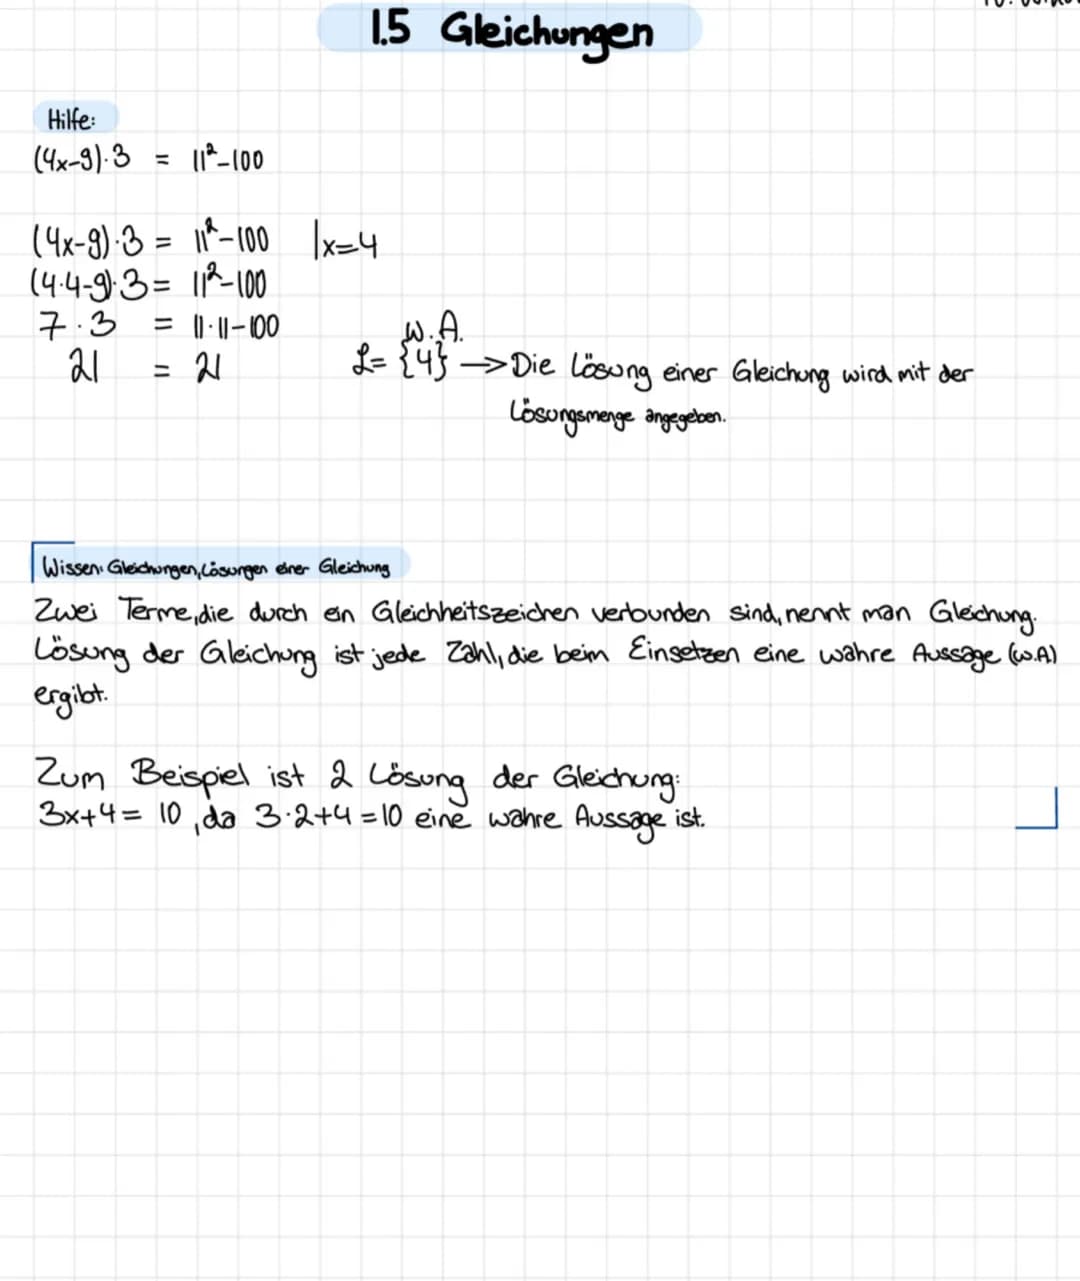 1.5 Gleichungen
Hilfe:
(4x-9)·3 = 11²-100
(4x-9)·3 = 11²-100 |x=4
(4·4-9)·3 = 11²-100
7·3 = 11·11-100
21 = 21 w.A.
L= {4} → Die Lösung einer Gleichung wird mit der
Lösungsmenge angegeben.
Wissen: Gleichungen, Lösungen einer Gleichung
Zwei Terme, die durch ein Gleichheitszeichen verbunden sind, nennt man Gleichung.
Lösung der Gleichung ist jede Zahl, die beim Einsetzen eine wahre Aussage (w.A)
ergibt.
Zum Beispiel ist 2 Lösung der Gleichung:
3x+4 = 10, da 3·2+4 = 10 eine wahre Aussage ist.